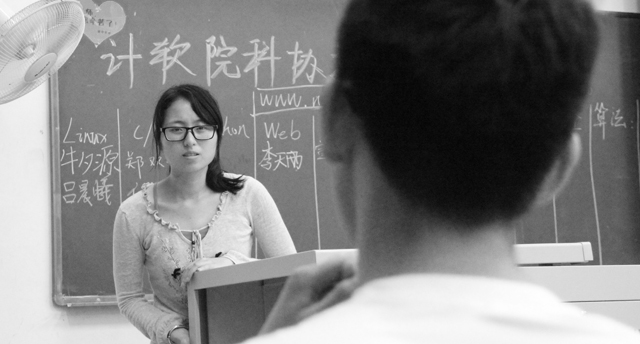 计软院科协
www.
Linux
牛夕源
吕晨曦
C/
hon
郑
Web
李天雨
算法: